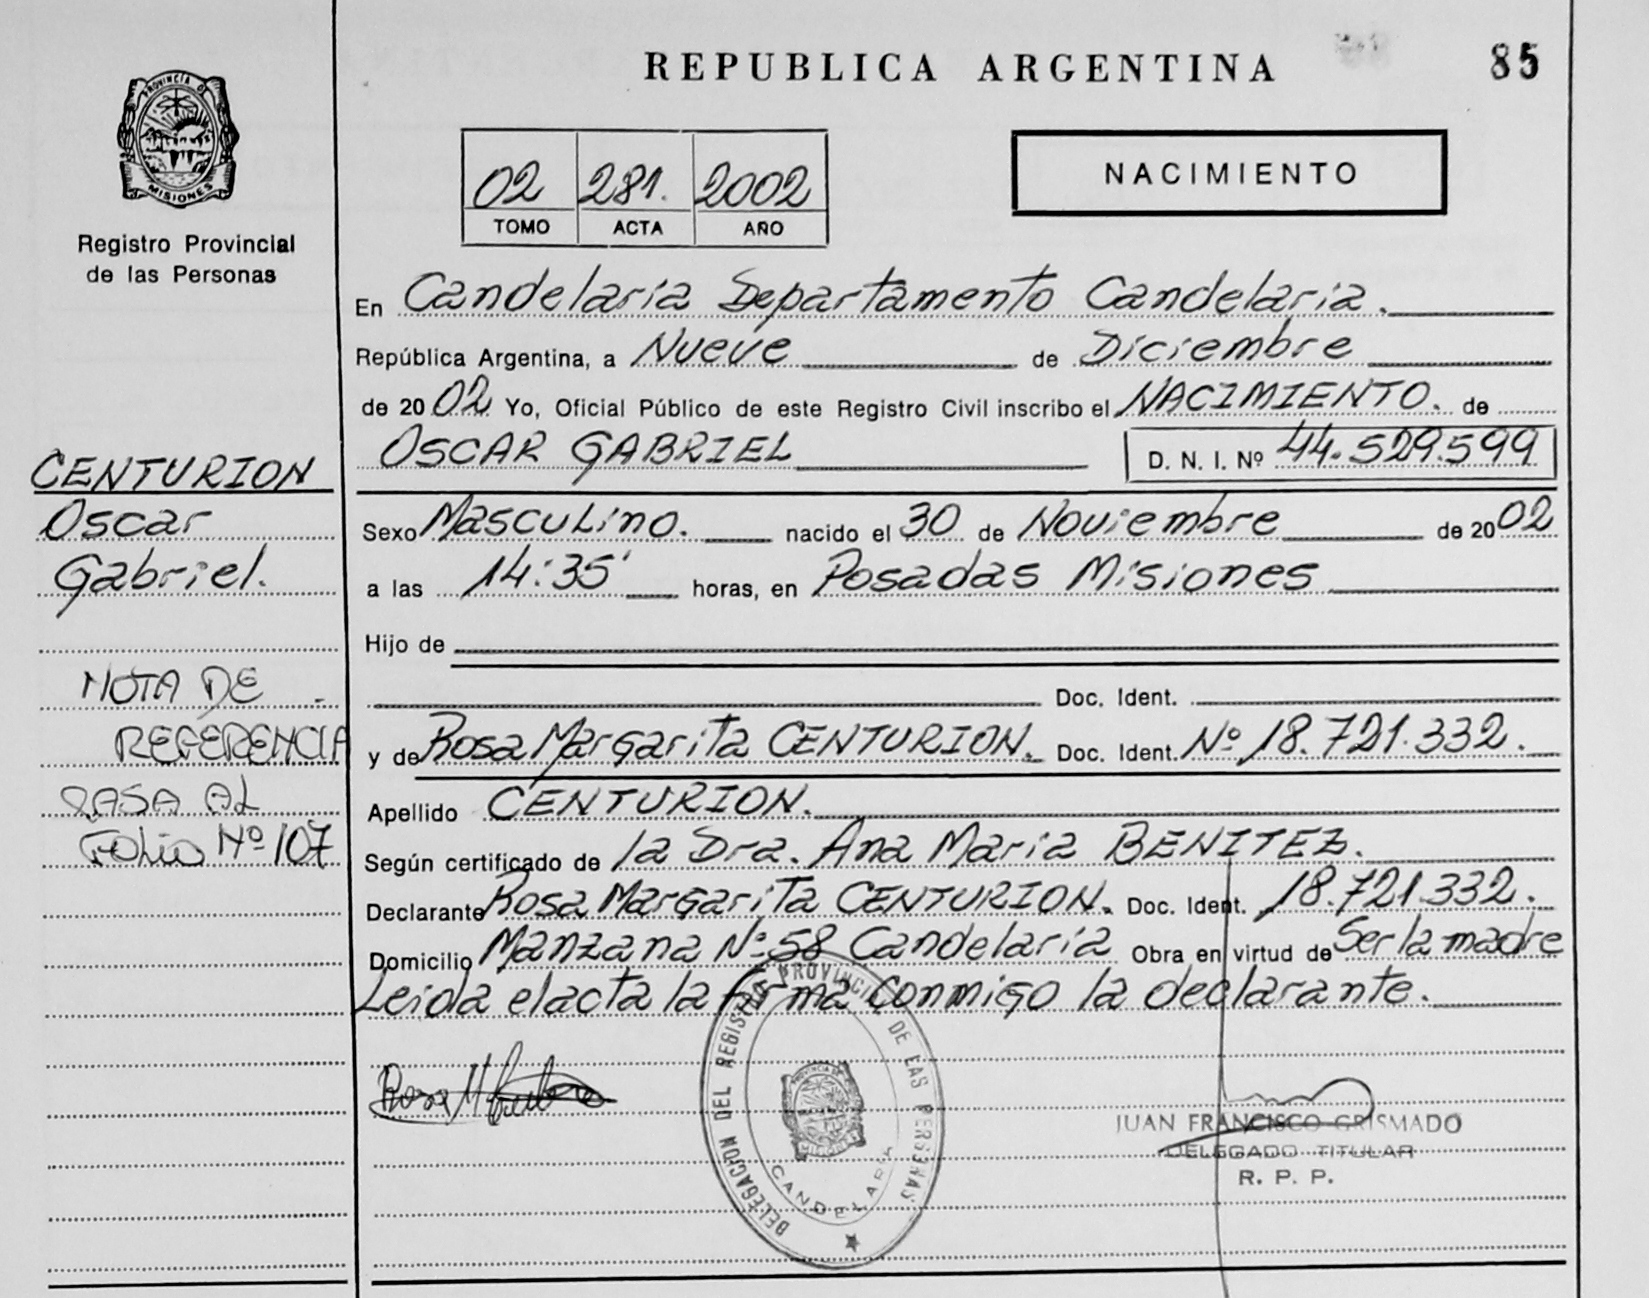 REPUBLICA ARGENTINA
85
PROVINCIA DE
MISIONES
Registro Provincial
de las Personas
02 281. 2002
TOMO ACTA AÑO
NACIMIENTO
En Candelaria Departamento Candelaria.
República Argentina, a Nueve de Diciembre
de 20 02 Yo, Oficial Público de este Registro Civil inscribo el NACIMIENTO. de
OSCAR GABRIEL D. N. I. Nº 44.529.599
Sexo Masculino. nacido el 30 de Noviembre de 20 02
a las 14:35' horas, en Posadas Misiones
Hijo de
Doc. Ident.
y de Rosa Margarita CENTURION. Doc. Ident. Nº 18.721.332.
Apellido CENTURION.
Según certificado de la Dra. Ana Maria BENITEZ.
Declarante Rosa Margarita CENTURION. Doc. Ident. 18.721.332.
Domicilio Manzana Nº 58 Candelaria Obra en virtud de Ser la madre
Leida el acta la firma conmigo la declarante.
CENTURION
Oscar
Gabriel.
NOTA DE
REFERENCIA
PASA AL
FOLIO Nº 107
DELEGACION DEL REGISTRO PROVINCIAL DE LAS PERSONAS
PROVINCIA DE
CANDELARIA
JUAN FRANCISCO GRISMADO
DELEGADO TITULAR
R. P. P.